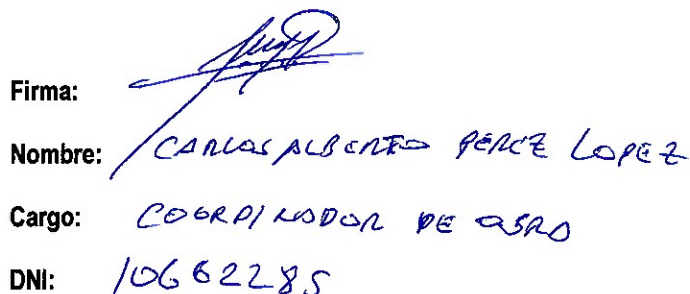 Firma:
Nombre: CARLOS ALBERTO PEREZ LOPEZ
Cargo: COORDINADOR DE OBRA
DNI: 10662285